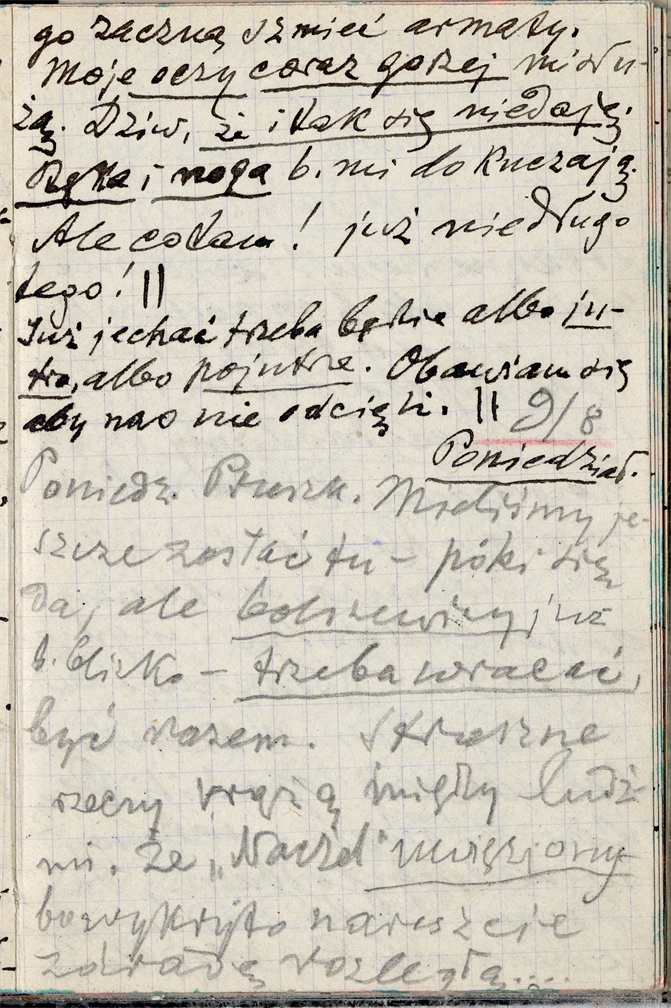 go zaczną grzmieć armaty.
Moje oczy coraz gorzej mi słu-
żą. Dziw, że i tak się niedaję.
Ręka i noga b. mi dokuczają.
Ale cotam! już niedługo
tego! ||
Już jechać trzeba będzie albo ju-
tro, albo pojutrze. Obawiam się
aby nas nie odcięli. || 9/8
Poniedział.
Poniedz. Pruszk. Mieliśmy je-
szcze zostać tu – póki się
da, ale bolszewicy już
b. blizko – trzeba wracać,
być razem. Straszne
rzeczy krążą między ludź-
mi. Że „Naczel" uwięziony
bo wykryto nareszcie
zdradę rozległą....